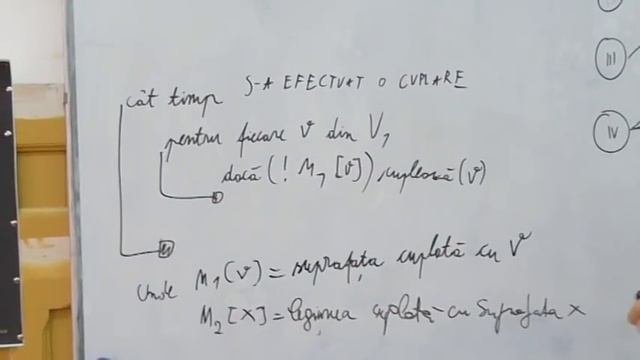 cât timp S-A EFECTUAT O CUPLARE
pentru fiecare v din V₁
dacă (! M₁ [v]) cuplează (v)
Unde M₁(v) = suprafața cuplată cu v
M₂[X] = legiunea cuplată cu suprafata x
III
IV